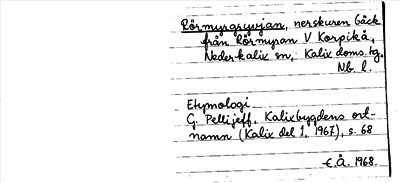 Rörmyrgryvjan, nerskuren bäck
från Rörmyran V Korpikå,
Nederkalix sn, Kalix doms. tg.
Nb. l.
Etymologi
G. Pellijeff, Kalixbygdens ort-
namn (Kalix del 1, 1967), s. 68
E.Å. 1968.